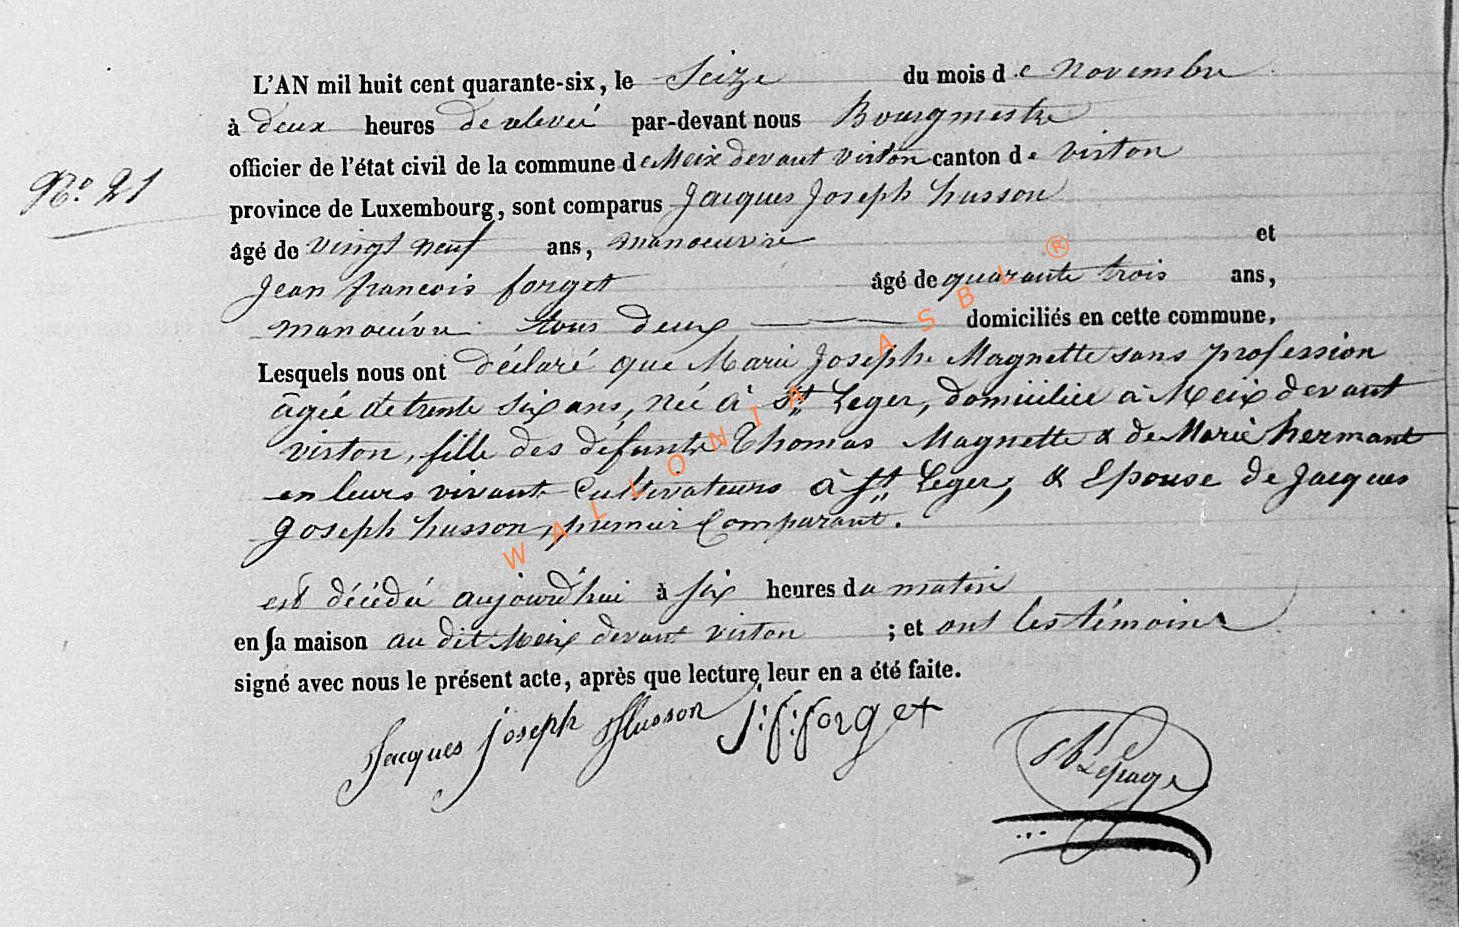 L'AN mil huit cent quarante-six, le Seize du mois de novembre
à deux heures de relevée par-devant nous Bourgmestre
officier de l'état civil de la commune de Meix devant virton canton de virton
N.o 21
province de Luxembourg, sont comparus Jacques Joseph husson
âgé de vingt neuf ans, manoeuvre et
Jean françois forget âgé de quarante trois ans,
manoeuvre tous deux domiciliés en cette commune,
Lesquels nous ont déclaré que Marie Joseph Magnette sans profession
âgée de trente six ans, née à St Leger, domiciliée à Meix devant
virton, fille des défunts Thomas Magnette & de Marie hermant
en leurs vivants Cultivateurs à St Leger, & Epouse de Jacques
Joseph husson, premier Comparant.
est décédée aujourd'hui à six heures du matin
en sa maison au dit Meix devant virton ; et ont les témoins
signé avec nous le présent acte, après que lecture leur en a été faite.
Jacques joseph Husson J: f: forget
Lepage
WALLONIA ASBL ®